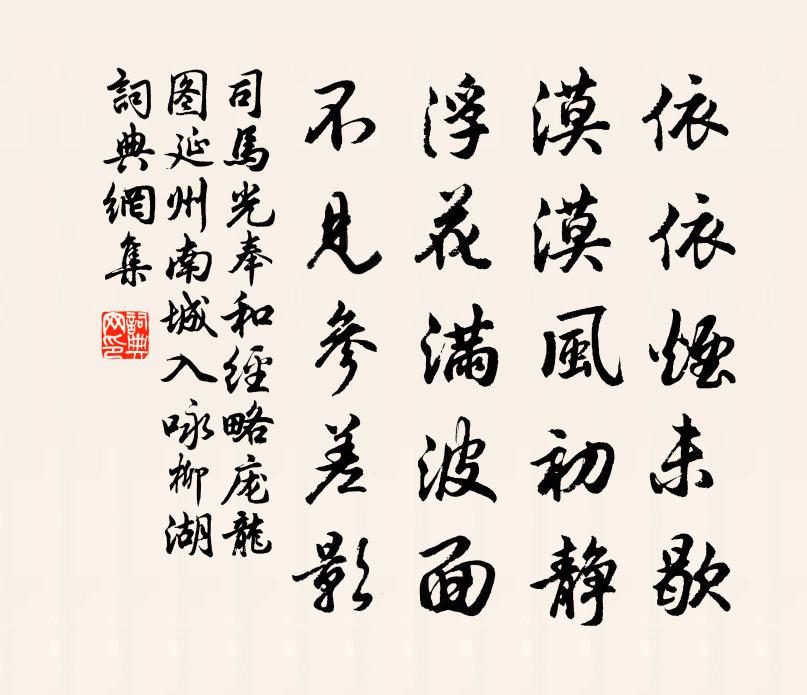 依依煙未歇
漠漠風初静
浮花滿波面
不見參差影
司馬光奉和經略庞龍
图延州南城入咏柳湖
詞典網集
詞典
网印